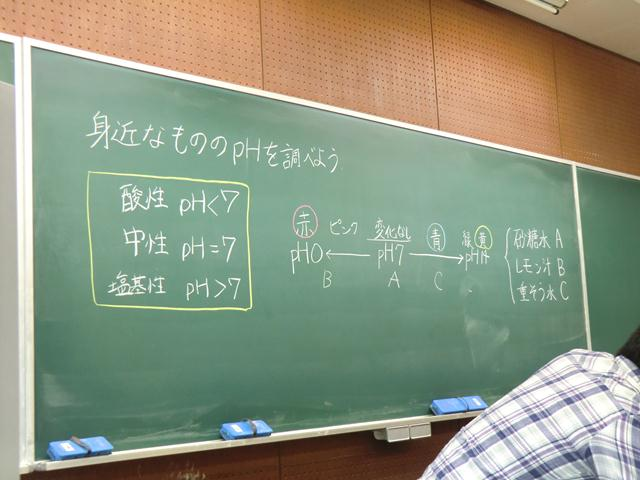 身近なもののpHを調べよう
酸性 pH<7
中性 pH=7
塩基性 pH>7
赤 ピンク 変化なし 青 緑 黄
pH0 ← pH7 → pH14
B A C
砂糖水 A
レモン汁 B
重そう水 C